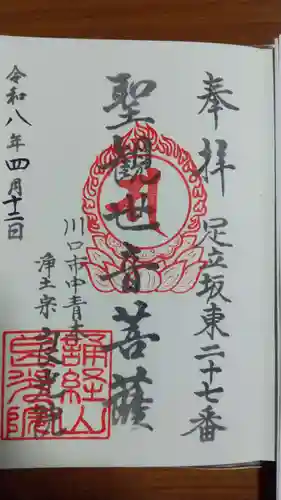 奉拝 足立坂東二十七番
聖観世音菩薩
川口市中青木
浄土宗
令和八年四月十二日
誦経山